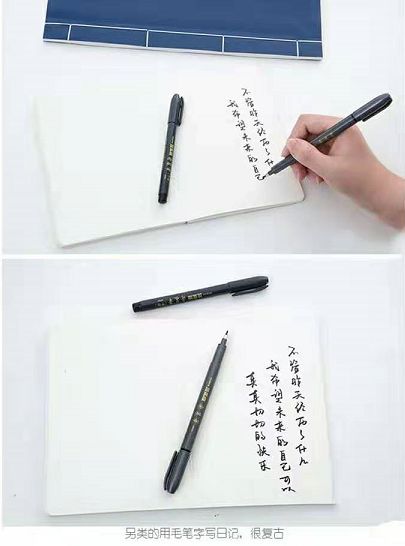 不管昨天经历了什
我希望未来的自己
不管昨天经历了什么
我希望未来的自己可以
真真切切的快乐
另类的用毛笔字写日记，很复古